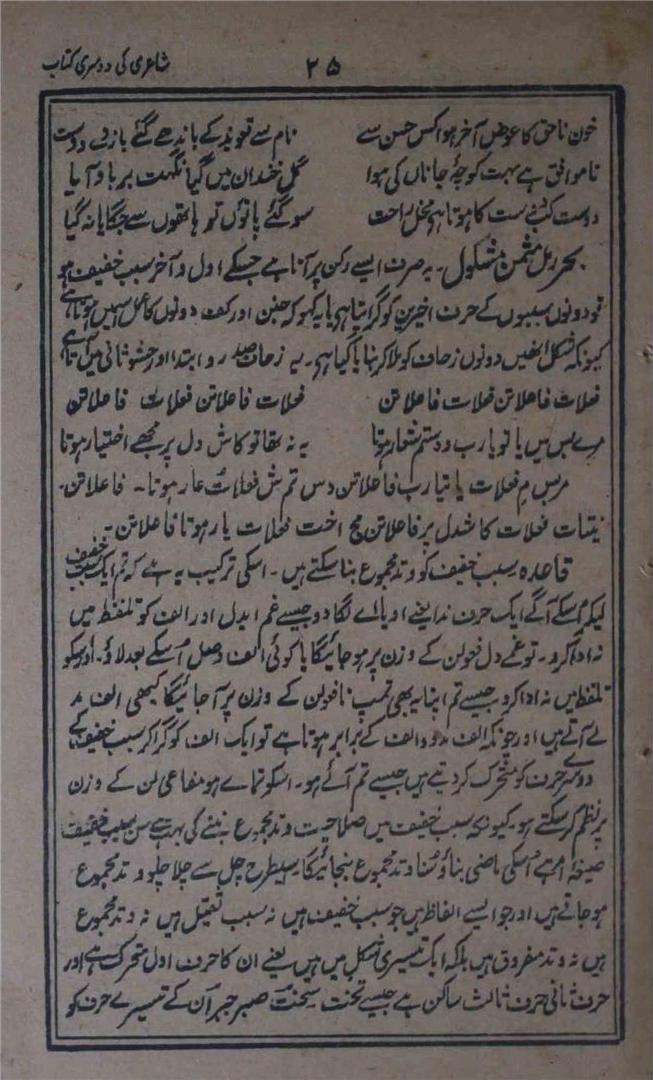 شاعری کی دوسری کتاب
۲۵
خون ناحق کا عوض آخر ہوا کس حسن سے نام سے تعویذ کے باندھے گئے بازوے دوست
ناموافق ہے بہت کوچۂ جاناں کی ہوا گل خندان میں گیا نکہت برباد آیا
دوست کب دست کا ہوتا ہے مخل راحت سو گئے پانوں تو ہاتھوں سے جگایا نہ گیا
بحر رمل مثمن مشکول ۔ یہ صرف ایسے رکن پر آتا ہے جسکے اول و آخر سبب خفیف ہو
تو دونوں سببوں کے حرف اخیرین کو گرا دیتا ہے یا یہ کہو کہ خبن اور کف دونوں کا عمل اسمیں ہوتا ہے
کیونکہ شکل انھیں دونوں زحاف کو ملا کر بنایا گیا ہے ۔ یہ زحاف صدر و ابتدا اور حشو ثانی میں آتا ہے
فعلات فاعلاتن فعلات فاعلاتن فعلات فاعلاتن فعلات فاعلاتن
مرے بس میں یا تو یارب وہ ستم شعار ہوتا یہ نہ تھا تو کاش دل پر مجھے اختیار ہوتا
مربس م فعلات یا تیارب فاعلاتن دس تم ش فعلات عار ہوتا ۔ فاعلاتن ۔
ینتات فعلات کاشدل پر فاعلاتن مج اخت فعلات یار ہوتا فاعلاتن ۔
قاعدہ سبب خفیف کو وتد مجموع بنا سکتے ہیں ۔ اسکی ترکیب یہ ہے کہ تم ایک سبب خفیف
لیکر اسکے آگے ایک حرف ندا یعنے او یا اے لگا دو جیسے غم ایدل اور الف کو تلفظ میں
نہ ادا کرو ۔ تو غمے دل فعولن کے وزن پر ہو جائیگا یا کوئی الف وصل اسکے بعد لاؤ ۔ اور اسکو
تلفظ میں نہ ادا کرو جیسے تم اپنا یہ بھی تمپ نا فعولن کے وزن پر آ جائیگا کبھی الف مد
لے آتے ہیں اور چونکہ الف ممدودہ دو الف کے برابر ہوتا ہے تو ایک الف کو گرا کر سبب خفیف کے
دوسرے حرف کو متحرک کر دیتے ہیں جیسے تم آئے ہو ۔ اسکو تماے ہو مفاعی لن کے وزن
پر نظم کر سکتے ہو ۔ کیونکہ سبب خفیف میں صلاحیت وتد مجموع بننے کی بہت ہے سن سبب خفیف
صیغۂ امر ہے اسکی ماضی بناؤ سنا وتد مجموع بنجائیگا اسیطرح چل سے چلا چلو وتد مجموع
ہو جاتے ہیں اور جو ایسے الفاظ ہیں جو سبب خفیف ہیں نہ سبب ثقیل ہیں نہ وتد مجموع
ہیں نہ وتد مفروق ہیں بلکہ ایک تیسری شکل میں ہیں یعنے ان کا حرف اول متحرک ہے اور
حرف ثانی حرف ثالث ساکن ہے جیسے تخت سخت صبر جبر ان کے تیسرے حرف کو